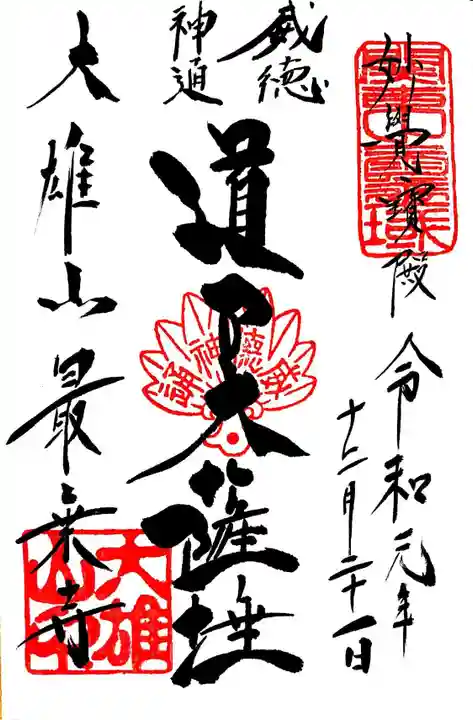 妙覺寳殿
令和元年
十二月二十一日
威徳
神通
道了大薩埵
大雄山最乗寺
大雄
山印